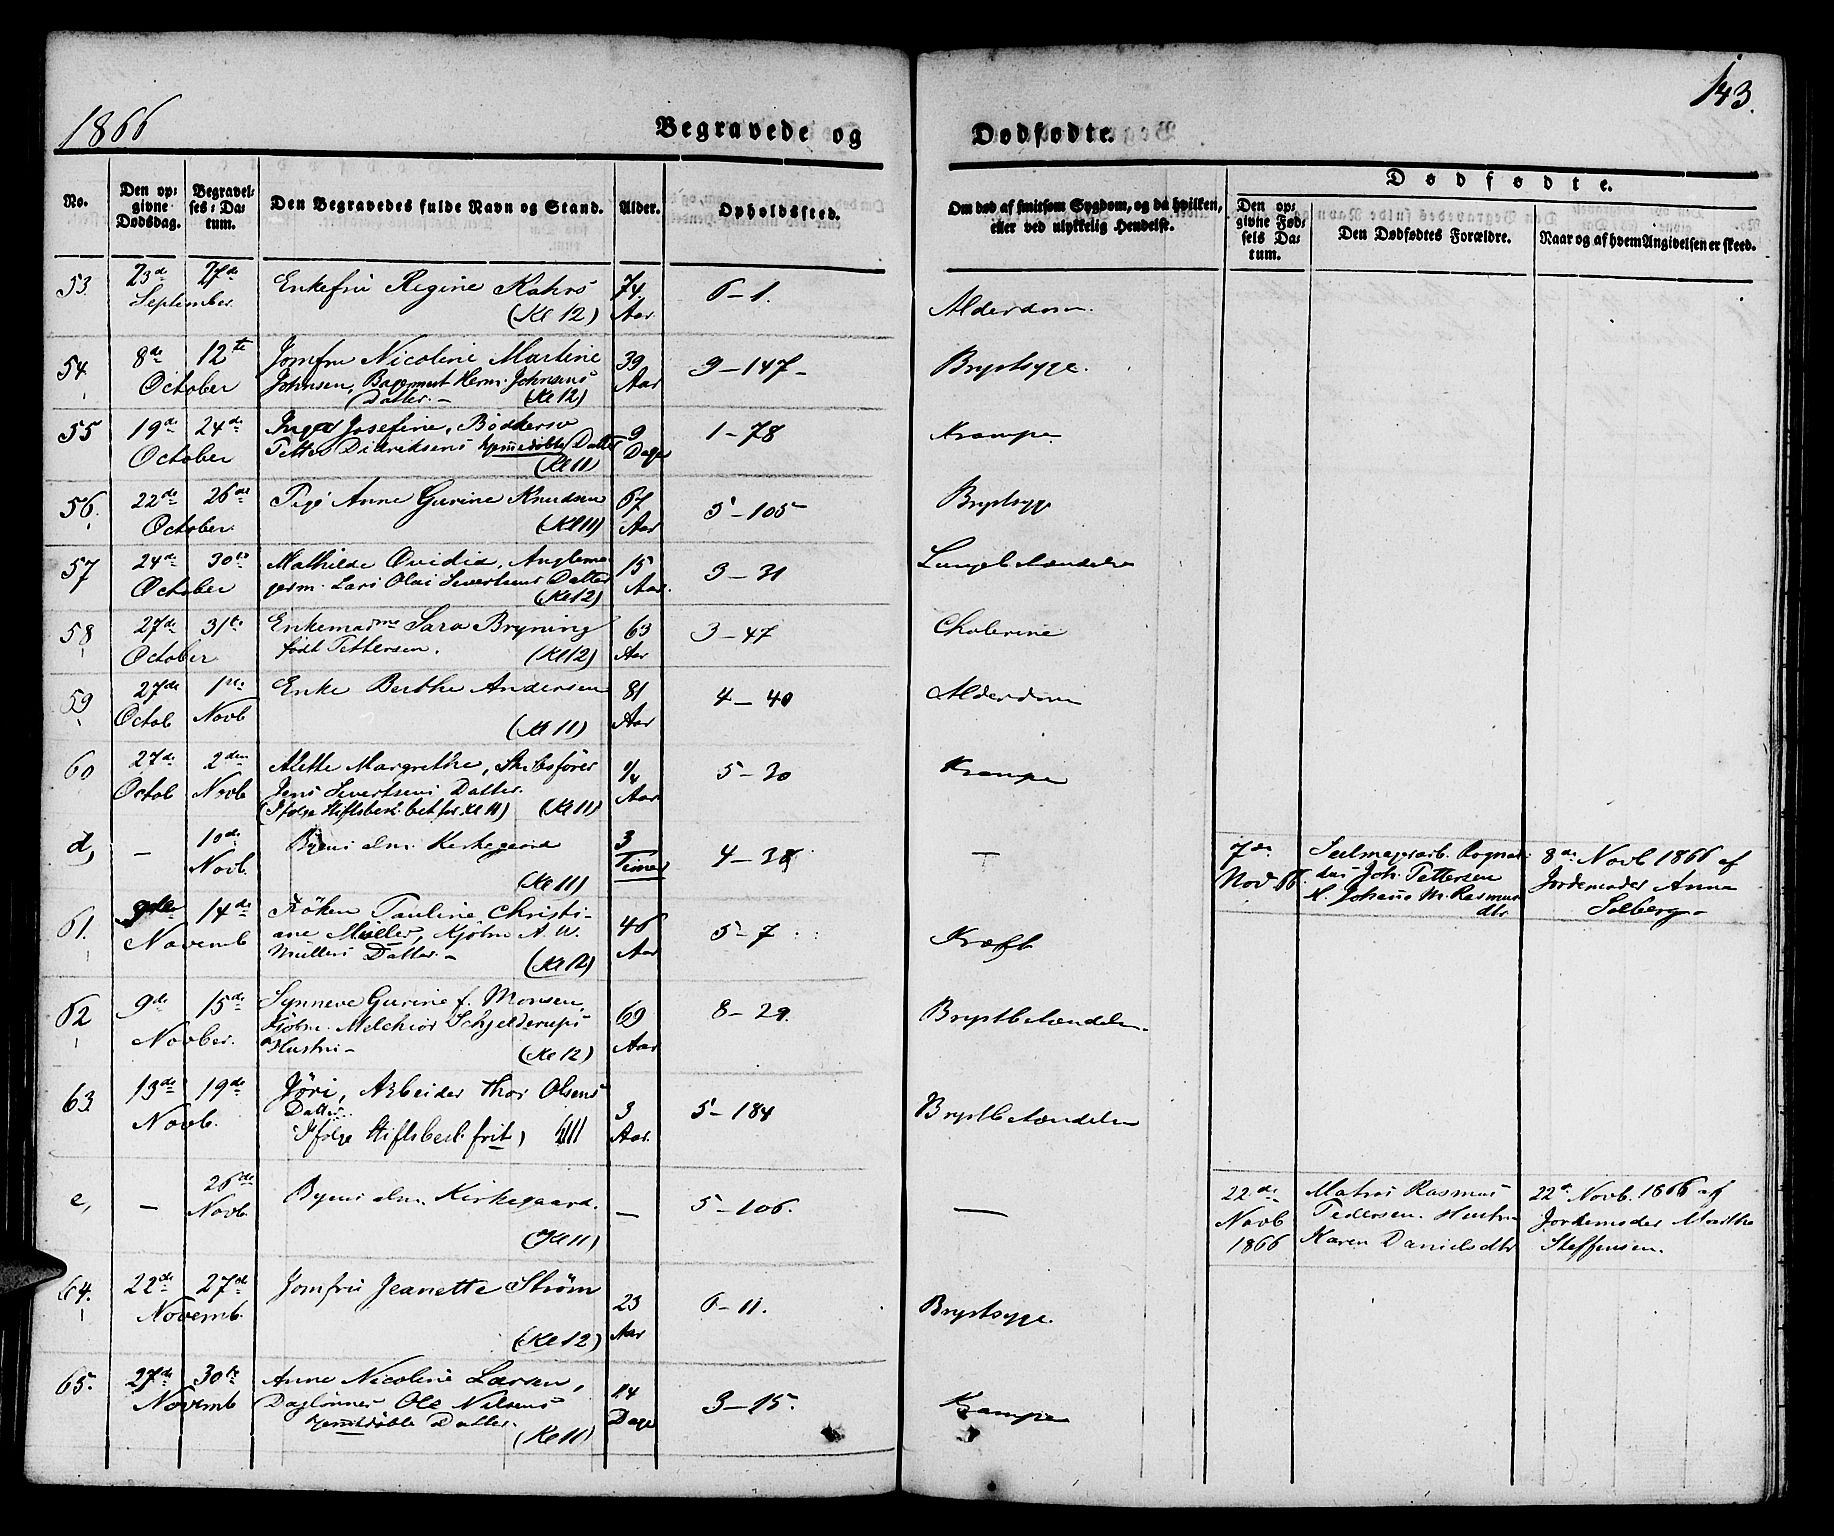 1866
Begravede og
Dødfødte.
143.
No.
Den op-
givne
Dødsdag.
Begravel-
ses-Da-
tum.
Den Begravedes fulde Navn og Stand.
Alder.
Opholdssted.
Om død af smitsom Sygdom, og da hvilken,
eller ved ulykkelig Hendelse.
Dødfødte.
Den op-
givne Fød-
sels Da-
tum.
Den Dødfødtes Forældre.
Naar og af hvem Angivelsen er skeed.
53. 23de 27de Enkefru Regine Kahrs 74. 6-1. Alderdom.
September. (Kl 12) Aar
54. 8de 12te Jomfru Nicoline Martine 39 9-147- Brystsyge.
October Johnsen, Bagermest Herm. Johnsens Aar
Datter.- (Kl 12)
55 19de 24de Inga Josefine, Bødkersv 9 1-78 Krampe
October Petter Didriksens hjemmedøbte Datter Dage
(Kl 11)
56. 22de 26de Pige Anne Gurine Knudsen 67 5-105 Brystsyge
October. (Kl 11) Aar
57 24de 30te Mathilde Ovidia, 15 3-31 Lungebetændelse
October Lars Olai Severtsens Datter Aar.
(Kl 12)
58 27de 31te Enkemadme Sara Bryning 63 3-47 Cholerine
October født Pettersen. (Kl 12) Aar
59 27de 1ste Enke Berthe Andersen 81 4-40 Alderdom
Octob Novb (Kl 11) Aar
60 27de 2den Alette Margrethe, Skibsfører 1/4 5-30 Krampe
Octob Novb Jens Severtsens Datter. Aar
(Ifølge Stiftsbesl. bet for Kl 11) (Kl 11)
d, - 10de Byens alm. Kirkegaard 3 4-38 - 7de Seilmagerarb. Rognal- 8de Novb 1866 af
Novb. (Kl 11) Timer Nov 66. dus Joh. Pettersen Jordemoder Anna
H. Johane M. Rasmus- Solberg-
dtr
61. 9de 14de Frøken Pauline Christi- 46 5-7 Kræft
Novemb ane Müller, Kjøbm A. W. Aar
Müllers Datter.- (Kl 12)
62 9de 15de Synneve Gurine f. Monsen, 69 8-29. Brystbetændelse.
Novber. Kjøbm. Melchior Schjelderups Aar
Hustru- (Kl 12)
63 13de 19de Jøri, Arbeider Thor Olsens 3 5-184 Brystbetændelse
Novb. Datter. Aar.
Ifølge Stiftsbesl. frit,
e, - 26de Byens alm. Kirkegaard. - 5-106. - 22de Matros Rasmus 22de Novb. 1866 af
Novb. (Kl 11) Novb Pedersen. Hustru Jordemoder Marthe
1866 Karen Danielsdtr Steffensen.
64. 22de 27de Jomfru Jeanette Strøm 23 6-11. Brystsyge.
Novemb. (Kl 12) Aar
65. 27de 30te Anne Nicoline Larsen, 14 3-15. Krampe
Novemb Daglønner Ole Nilsens Dage
hjemmedøbte Datter. (Kl 11)